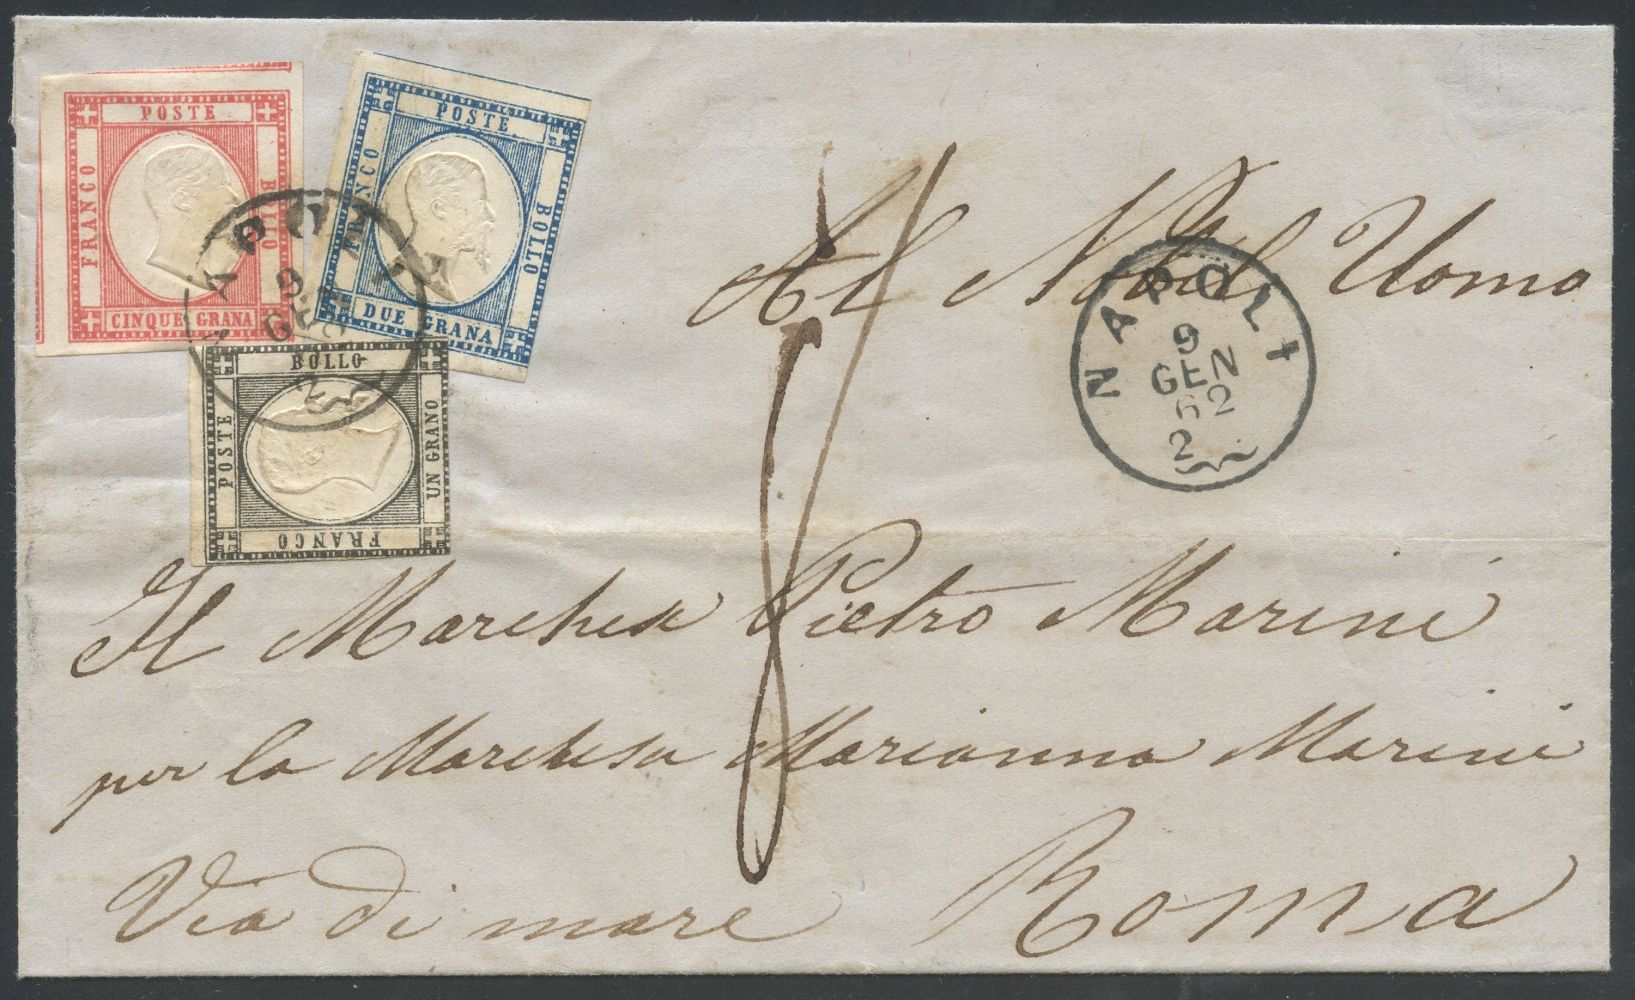 POSTE
FRANCO
BOLLO
CINQUE GRANA
POSTE
FRANCO
BOLLO
DUE GRANA
BOLLO
POSTE
UN GRANO
FRANCO
NAPOLI
9
GEN
2
Al Nobil Uomo
NAPOLI
9
GEN
62
2
8
Il Marchese Pietro Marini
per la Marchesa Marianna Marini
Via di mare Roma